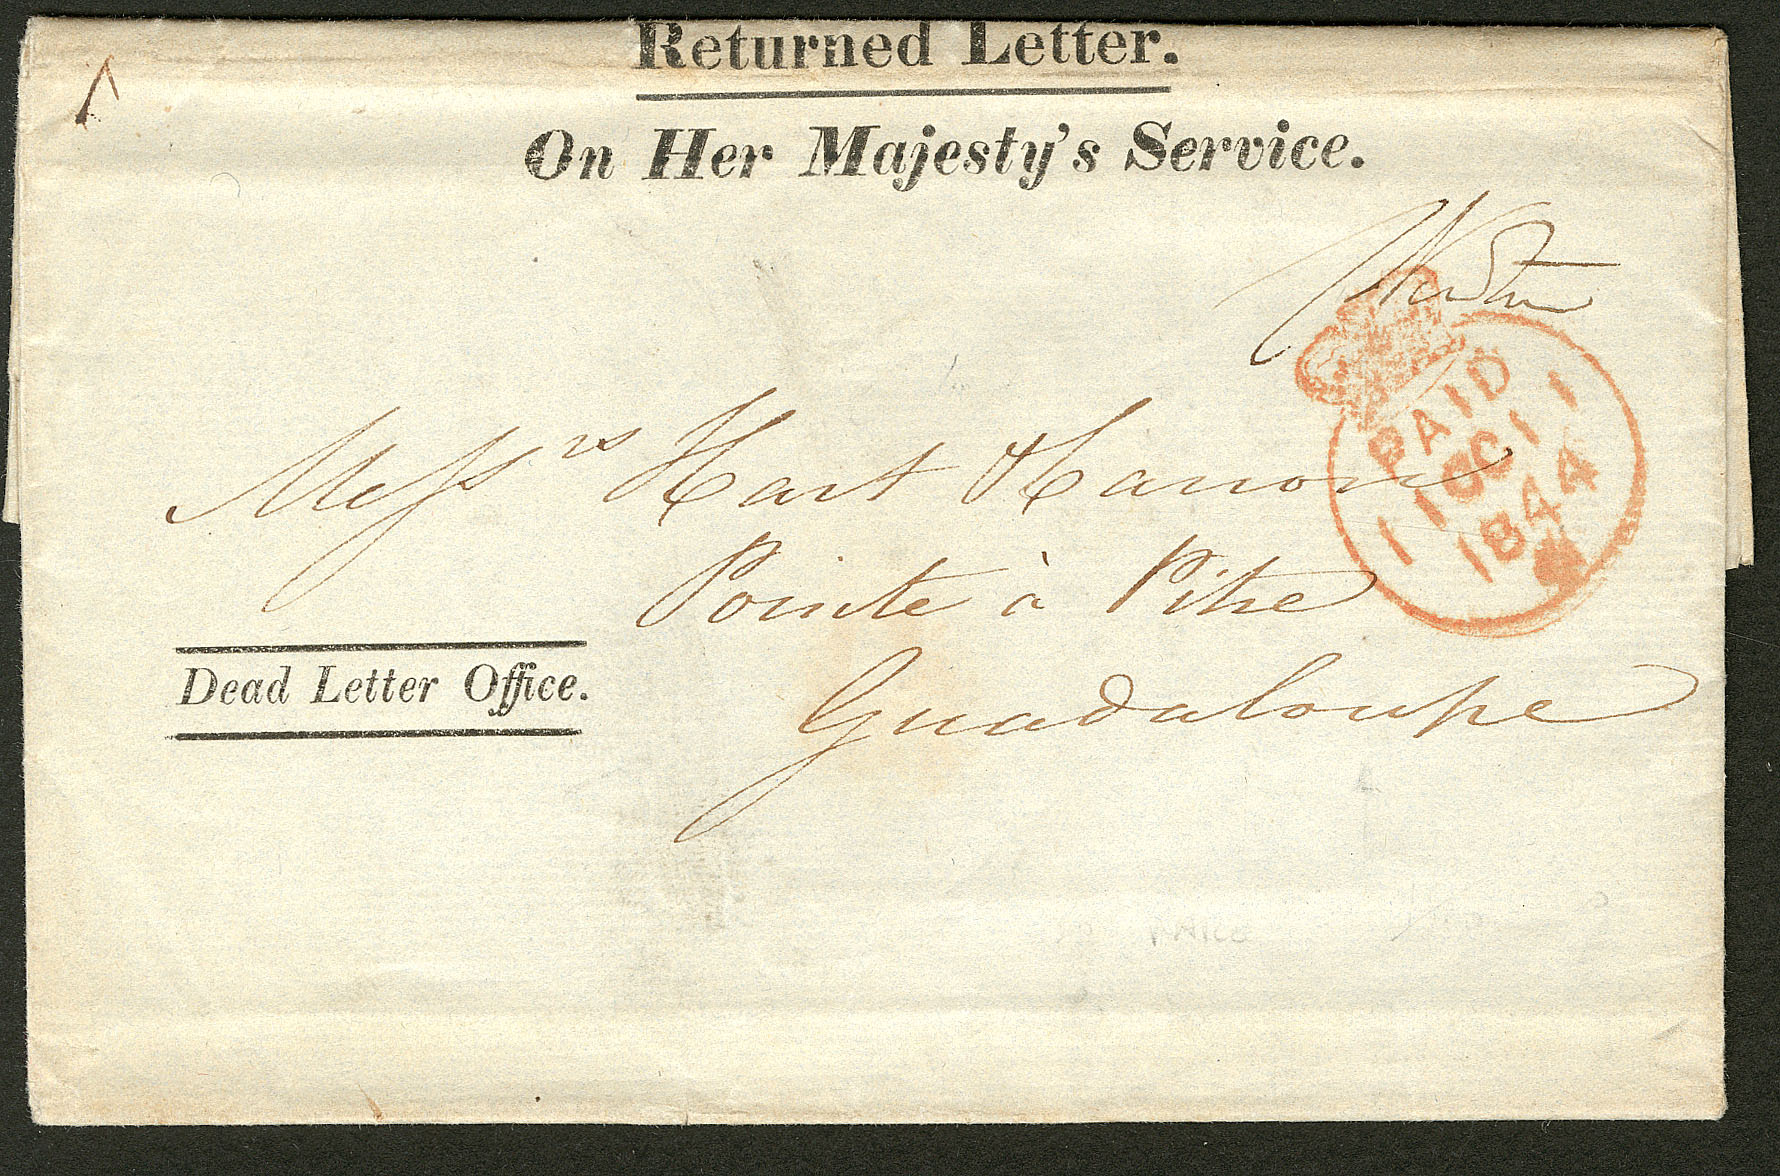 Returned Letter.
On Her Majesty's Service.
PAID
1 1
1 OC 1
1 1844
Messrs Hart Hanon
Pointe à Pitre
Guadaloupe
Dead Letter Office.